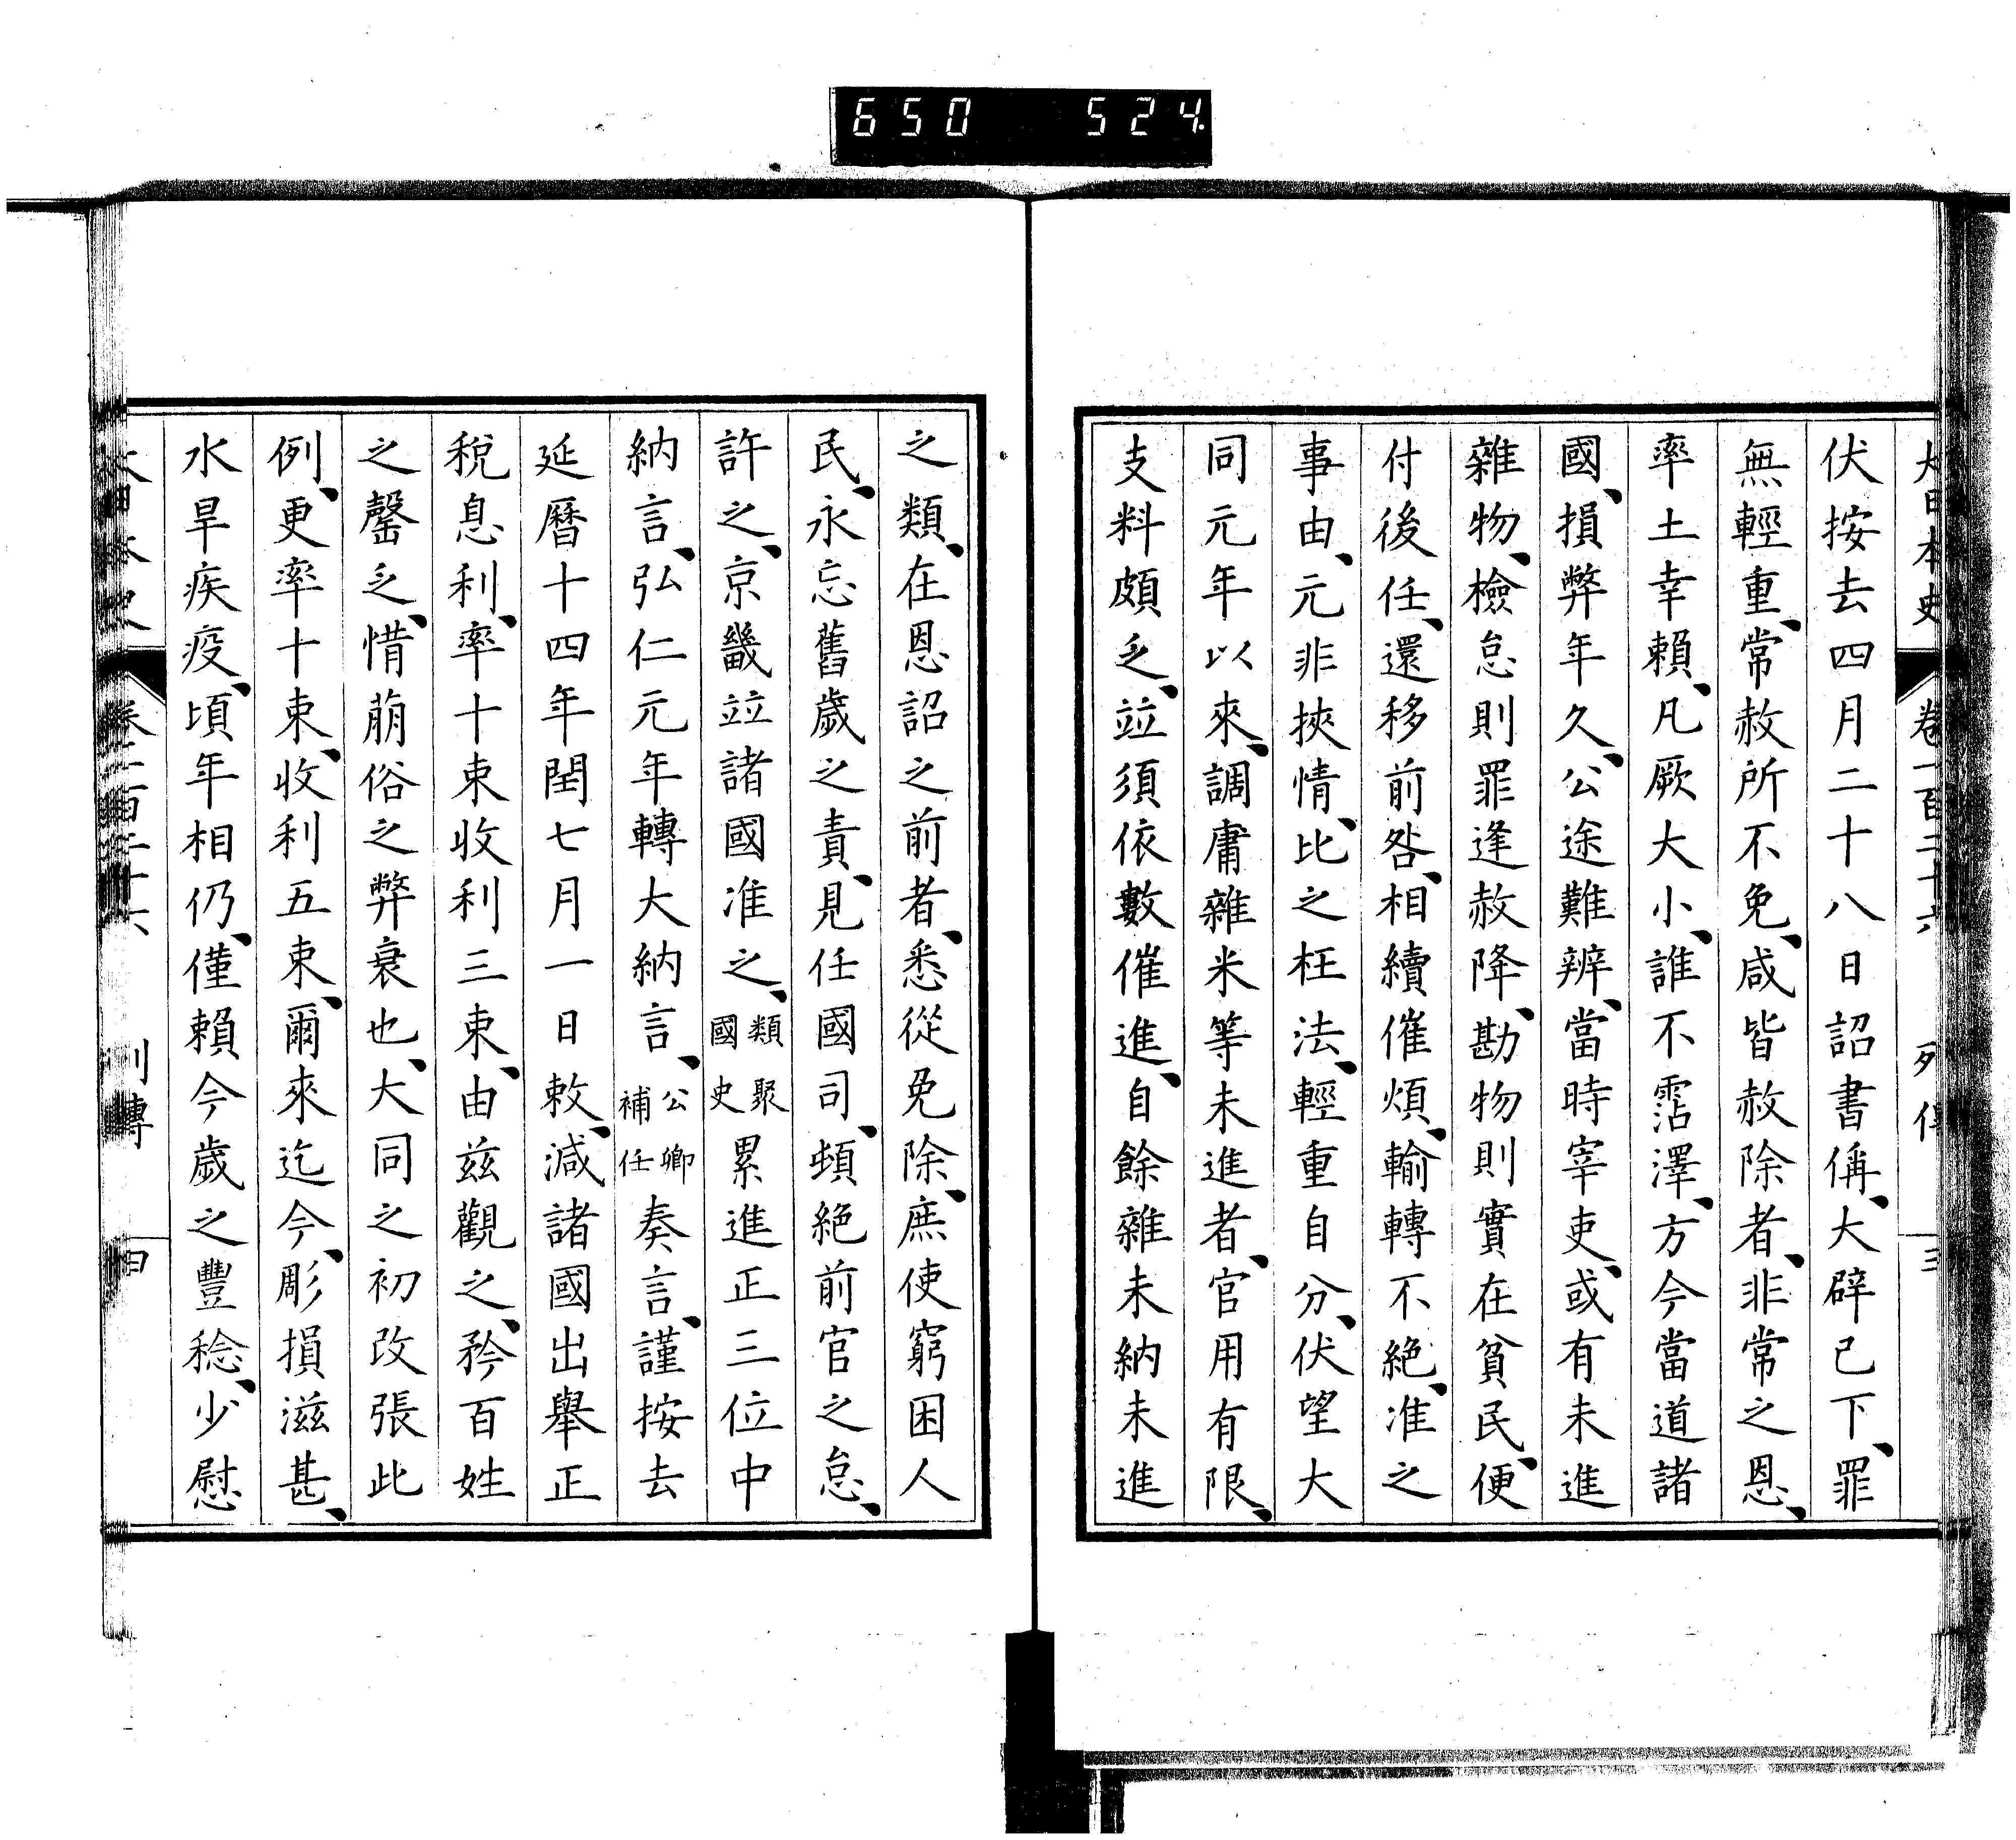 650 524
大日本史 卷一百二十六 列傳 三
伏按去四月二十八日詔書偁、大辟已下、罪
無輕重、常赦所不免、咸皆赦除者、非常之恩、
率土幸賴、凡厥大小、誰不霑澤、方今當道諸
國、損弊年久、公途難辨、當時宰吏、或有未進
雜物、檢怠則罪逢赦降、勘物則實在貧民、便
付後任、還移前咎、相續催煩、輸轉不絶、准之
事由、元非挾情、比之枉法、輕重自分、伏望大
同元年以來、調庸雜米等未進者、官用有限、
支料頗乏、竝須依數催進、自餘雜未納未進
之類、在恩詔之前者、悉從免除、庶使窮困人
民、永忘舊歲之責、見任國司、頓絶前官之怠、
許之、京畿竝諸國准之、類聚國史累進正三位中
納言、弘仁元年轉大納言、公卿補任奏言、謹按去
延曆十四年閏七月一日敕、減諸國出舉正
稅息利、率十束收利三束、由茲觀之、矜百姓
之罄乏、惜萠俗之弊衰也、大同之初改張此
例、更率十束、收利五束、爾來迄今、彫損滋甚、
水旱疾疫、頃年相仍、僅賴今歲之豐稔、少慰
大日本史 卷一百二十六 列傳 四